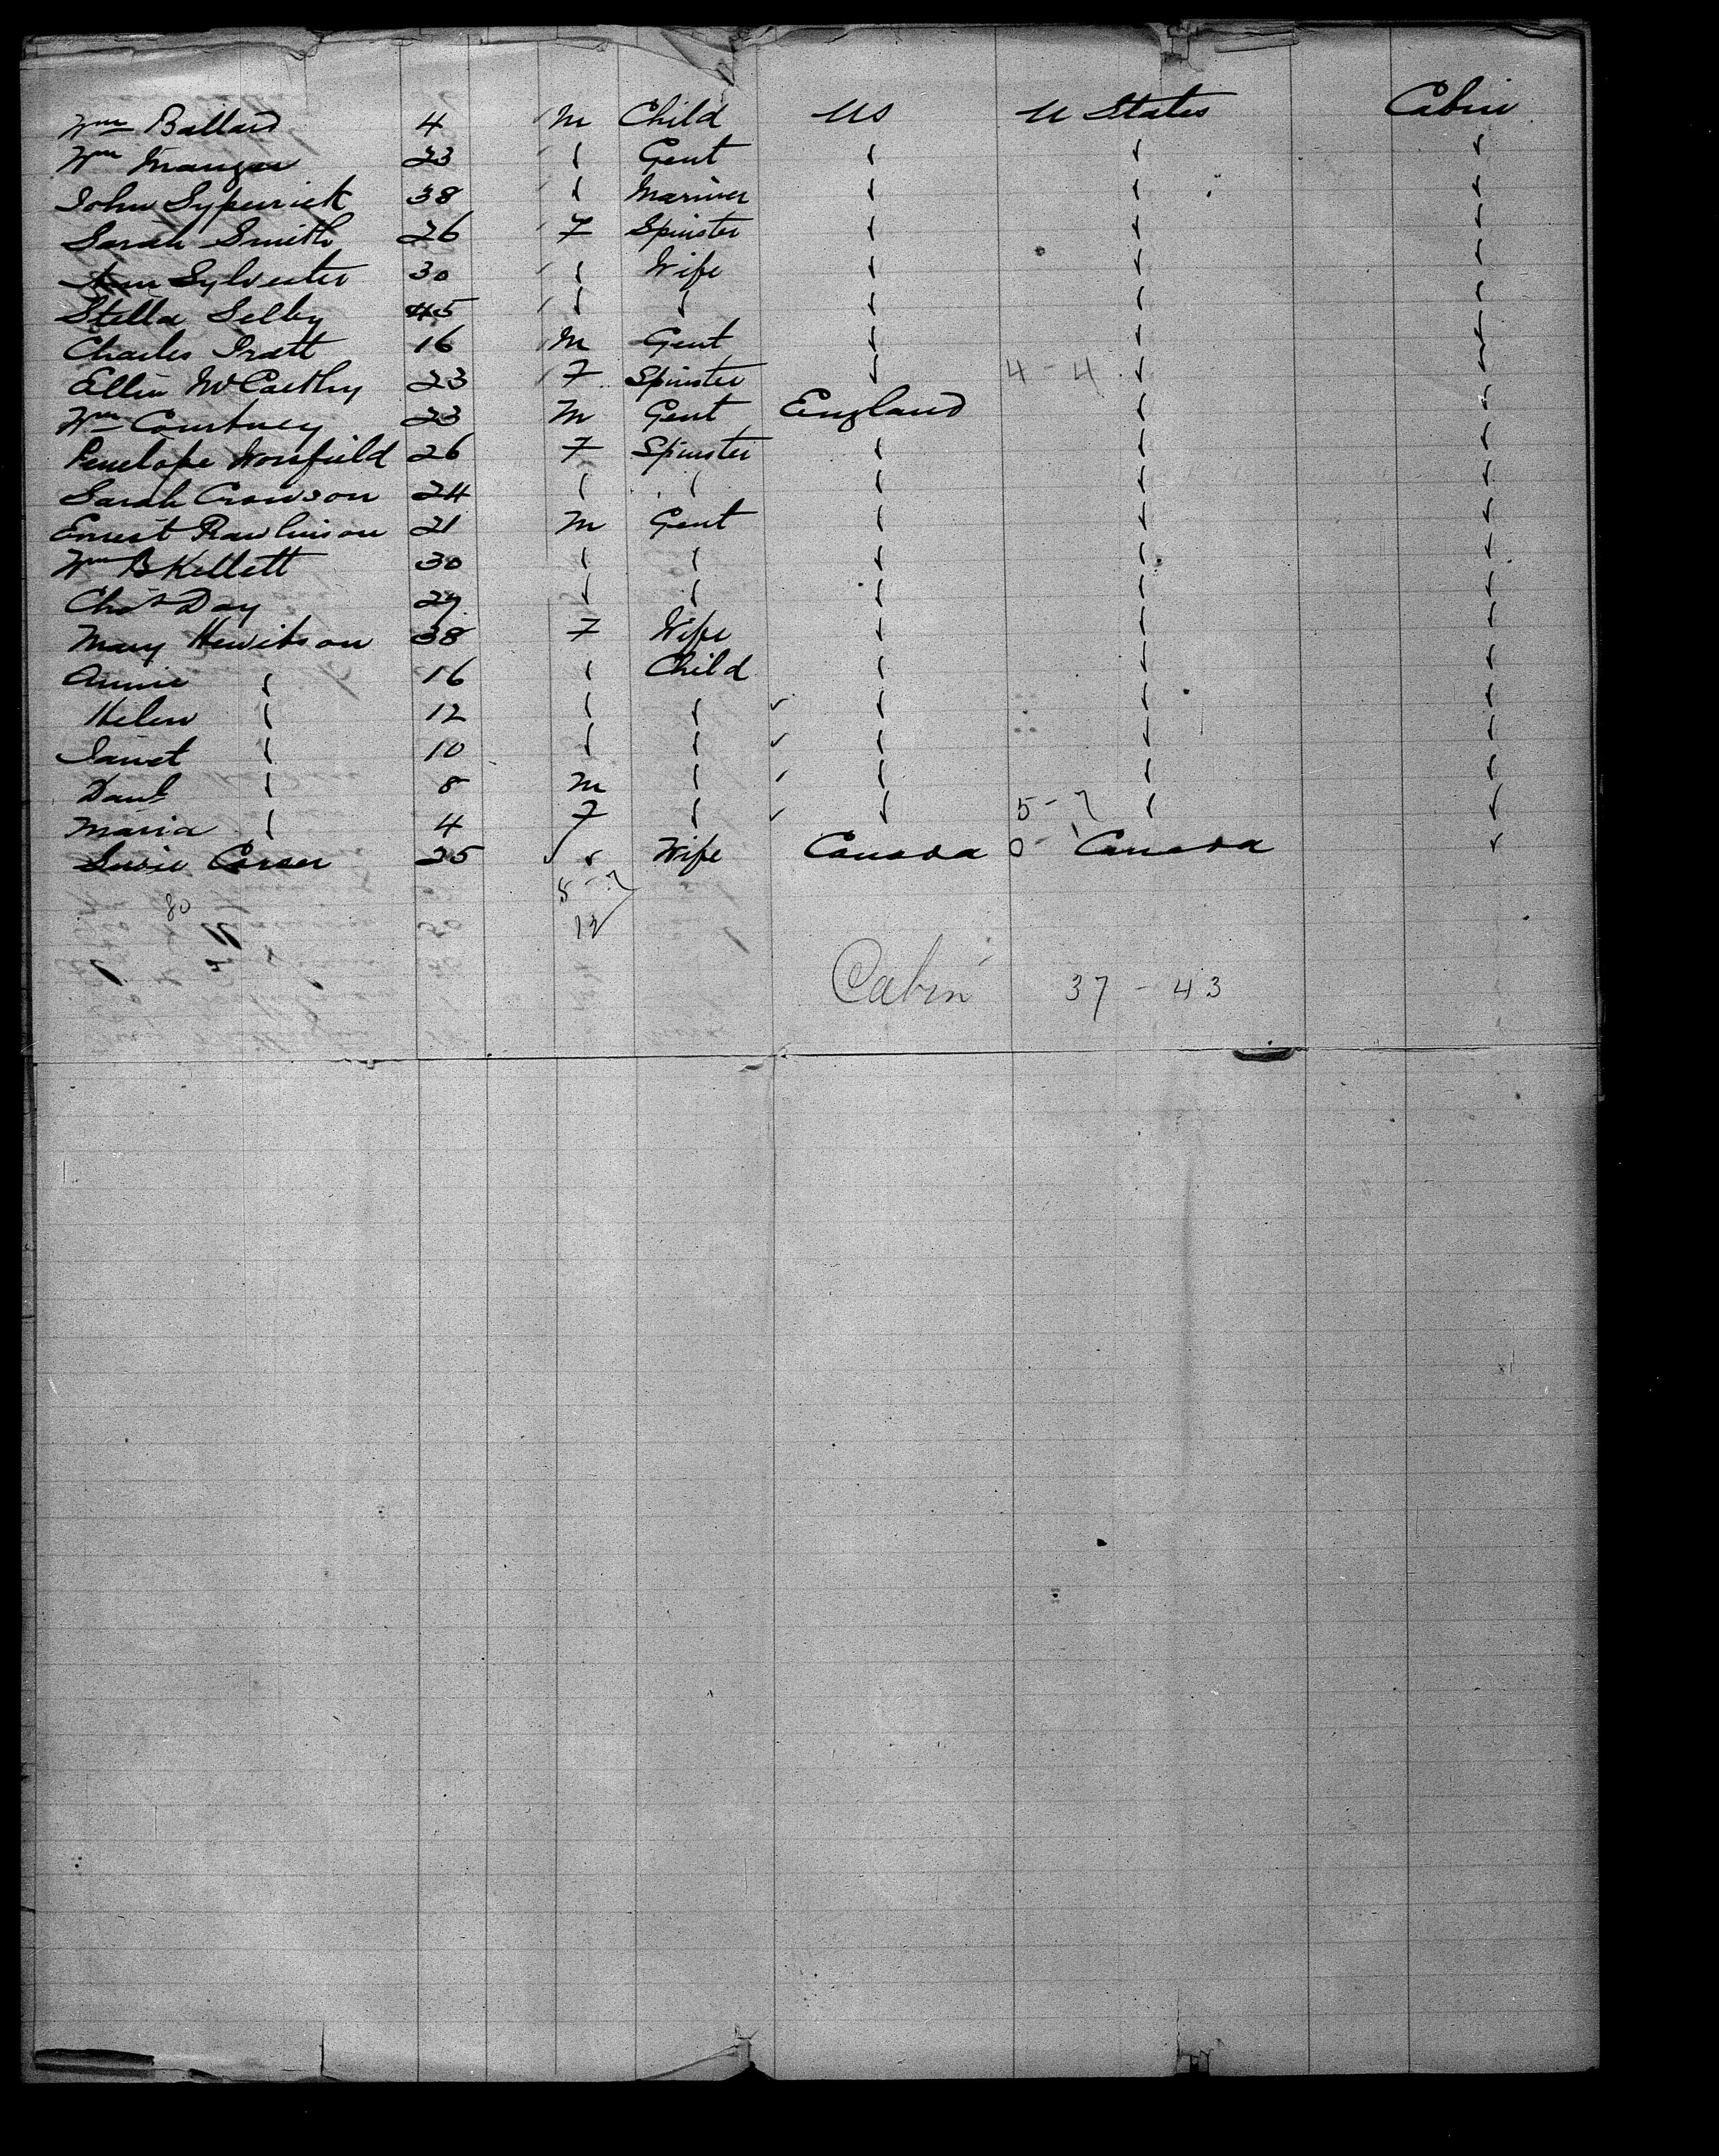 Wm Ballard 4 M Child US U States Cabin
Wm Mangan 23 " Gent " " "
John Sypewick 38 " Mariner " " "
Sarah Smith 26 F Spinster " " "
Ann Sylvester 30 " Wife " " "
Stella Selby 45 " " " " "
Charles Pratt 16 M Gent " " "
Ellen McCarthy 23 F Spinster " 4-4 " "
Wm Courtney 23 M Gent England " "
Penelope Worsfield 26 F Spinster " " "
Sarah Crowson 24 " " " " "
Ernest Rawlinson 21 M Gent " " "
Wm B Kellett 30 " " " " "
Chas Day 29 " " " " "
Mary Hewitson 38 F Wife " " "
Annie " 16 " Child " " "
Helen " 12 " " " " "
Janet " 10 " " " " "
Danl " 8 M " " " "
Maria " 4 F " " 5-7 " "
Susie 25 " Wife Canada 0-1 Canada "
80 5-7
12
Cabin 37-43